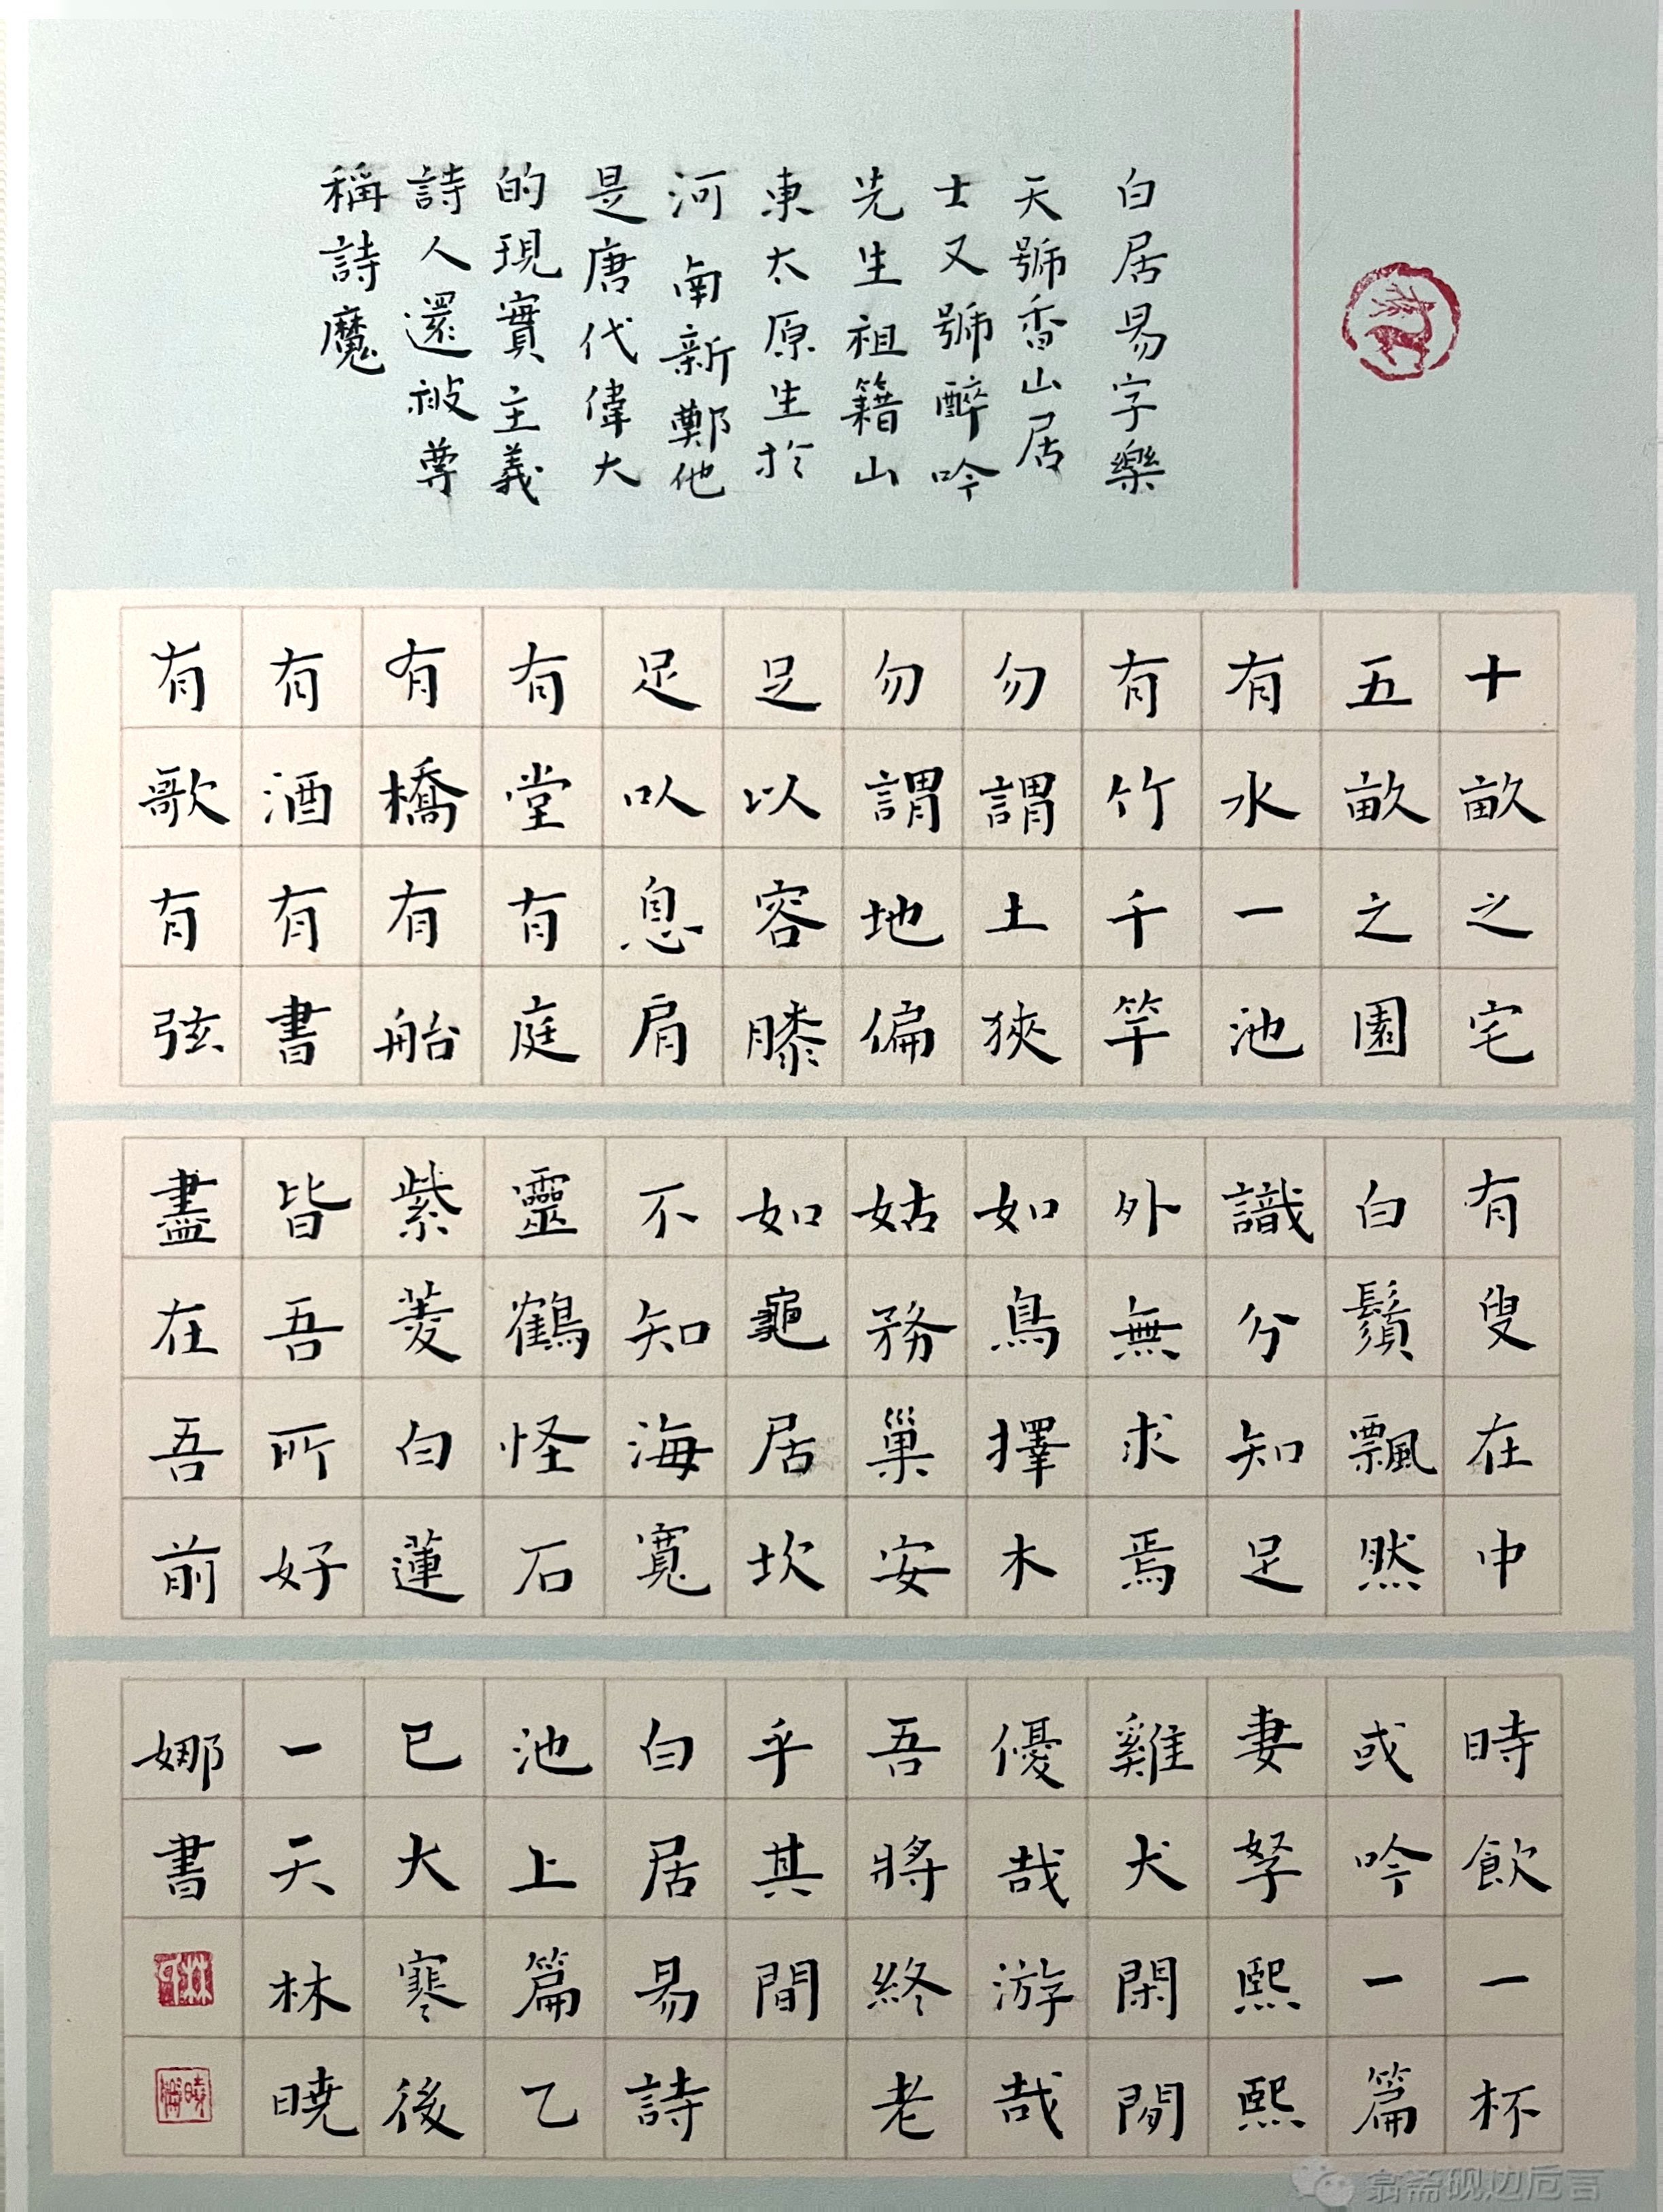 白居易字樂
天號香山居
士又號醉吟
先生祖籍山
東太原生於
河南新鄭他
是唐代偉大
的現實主義
詩人還被尊
稱詩魔
十畝之宅
五畝之園
有水一池
有竹千竿
勿謂土狹
勿謂地偏
足以容膝
足以息肩
有堂有庭
有橋有船
有酒有書
有歌有弦
有叟在中
白鬚飄然
識分知足
外無求焉
如鳥擇木
姑務巢安
如龜居坎
不知海寬
靈鶴怪石
紫菱白蓮
皆吾所好
盡在吾前
時飲一杯
或吟一篇
妻孥熙熙
雞犬閑閑
優哉游哉
吾將終老
乎其間
白居易詩
池上篇乙
巳大寒後
一天林曉
娜書
翕斋砚边卮言